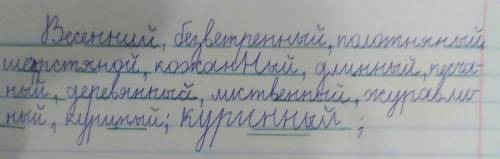 Весенний, безветренный, полотняный,
шерстяной, кожанНый, длинный, песча-
ный, деревянный, лиственный, журавли-
ный, куриный; куринный;